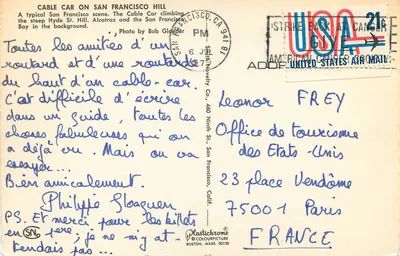 CABLE CAR ON SAN FRANCISCO HILL
A typical San Francisco scene. The Cable Car climbing
the steep Hyde St. Hill. Alcatraz and the San Francisco
Bay in the background.
Photo by Bob Glander
Toutes les amitiés d'un
routard et d'une routarde
du haut d'un cable-car.
C'est difficile d'écrire
dans un guide, toutes les
choses fabuleuses qu'on
a déjà vu. Mais on va
essayer...
Bien amicalement.
Philippe Gloaguen
PS. Et merci pour les billets
en 1ère; je ne m'y at-
tendais pas...
SN
SAN FRANCISCO, CA 941
PM
6 JUL
USA 21¢
UNITED STATES AIR MAIL
Leonor FREY
Office de tourisme
des Etats-Unis
23 place Vendôme
75001 Paris
FRANCE
Novelty Co., 460 Ninth St., San Francisco, Calif.
Plastichrome
COLOURPICTURE
BOSTON, MASS. 02130